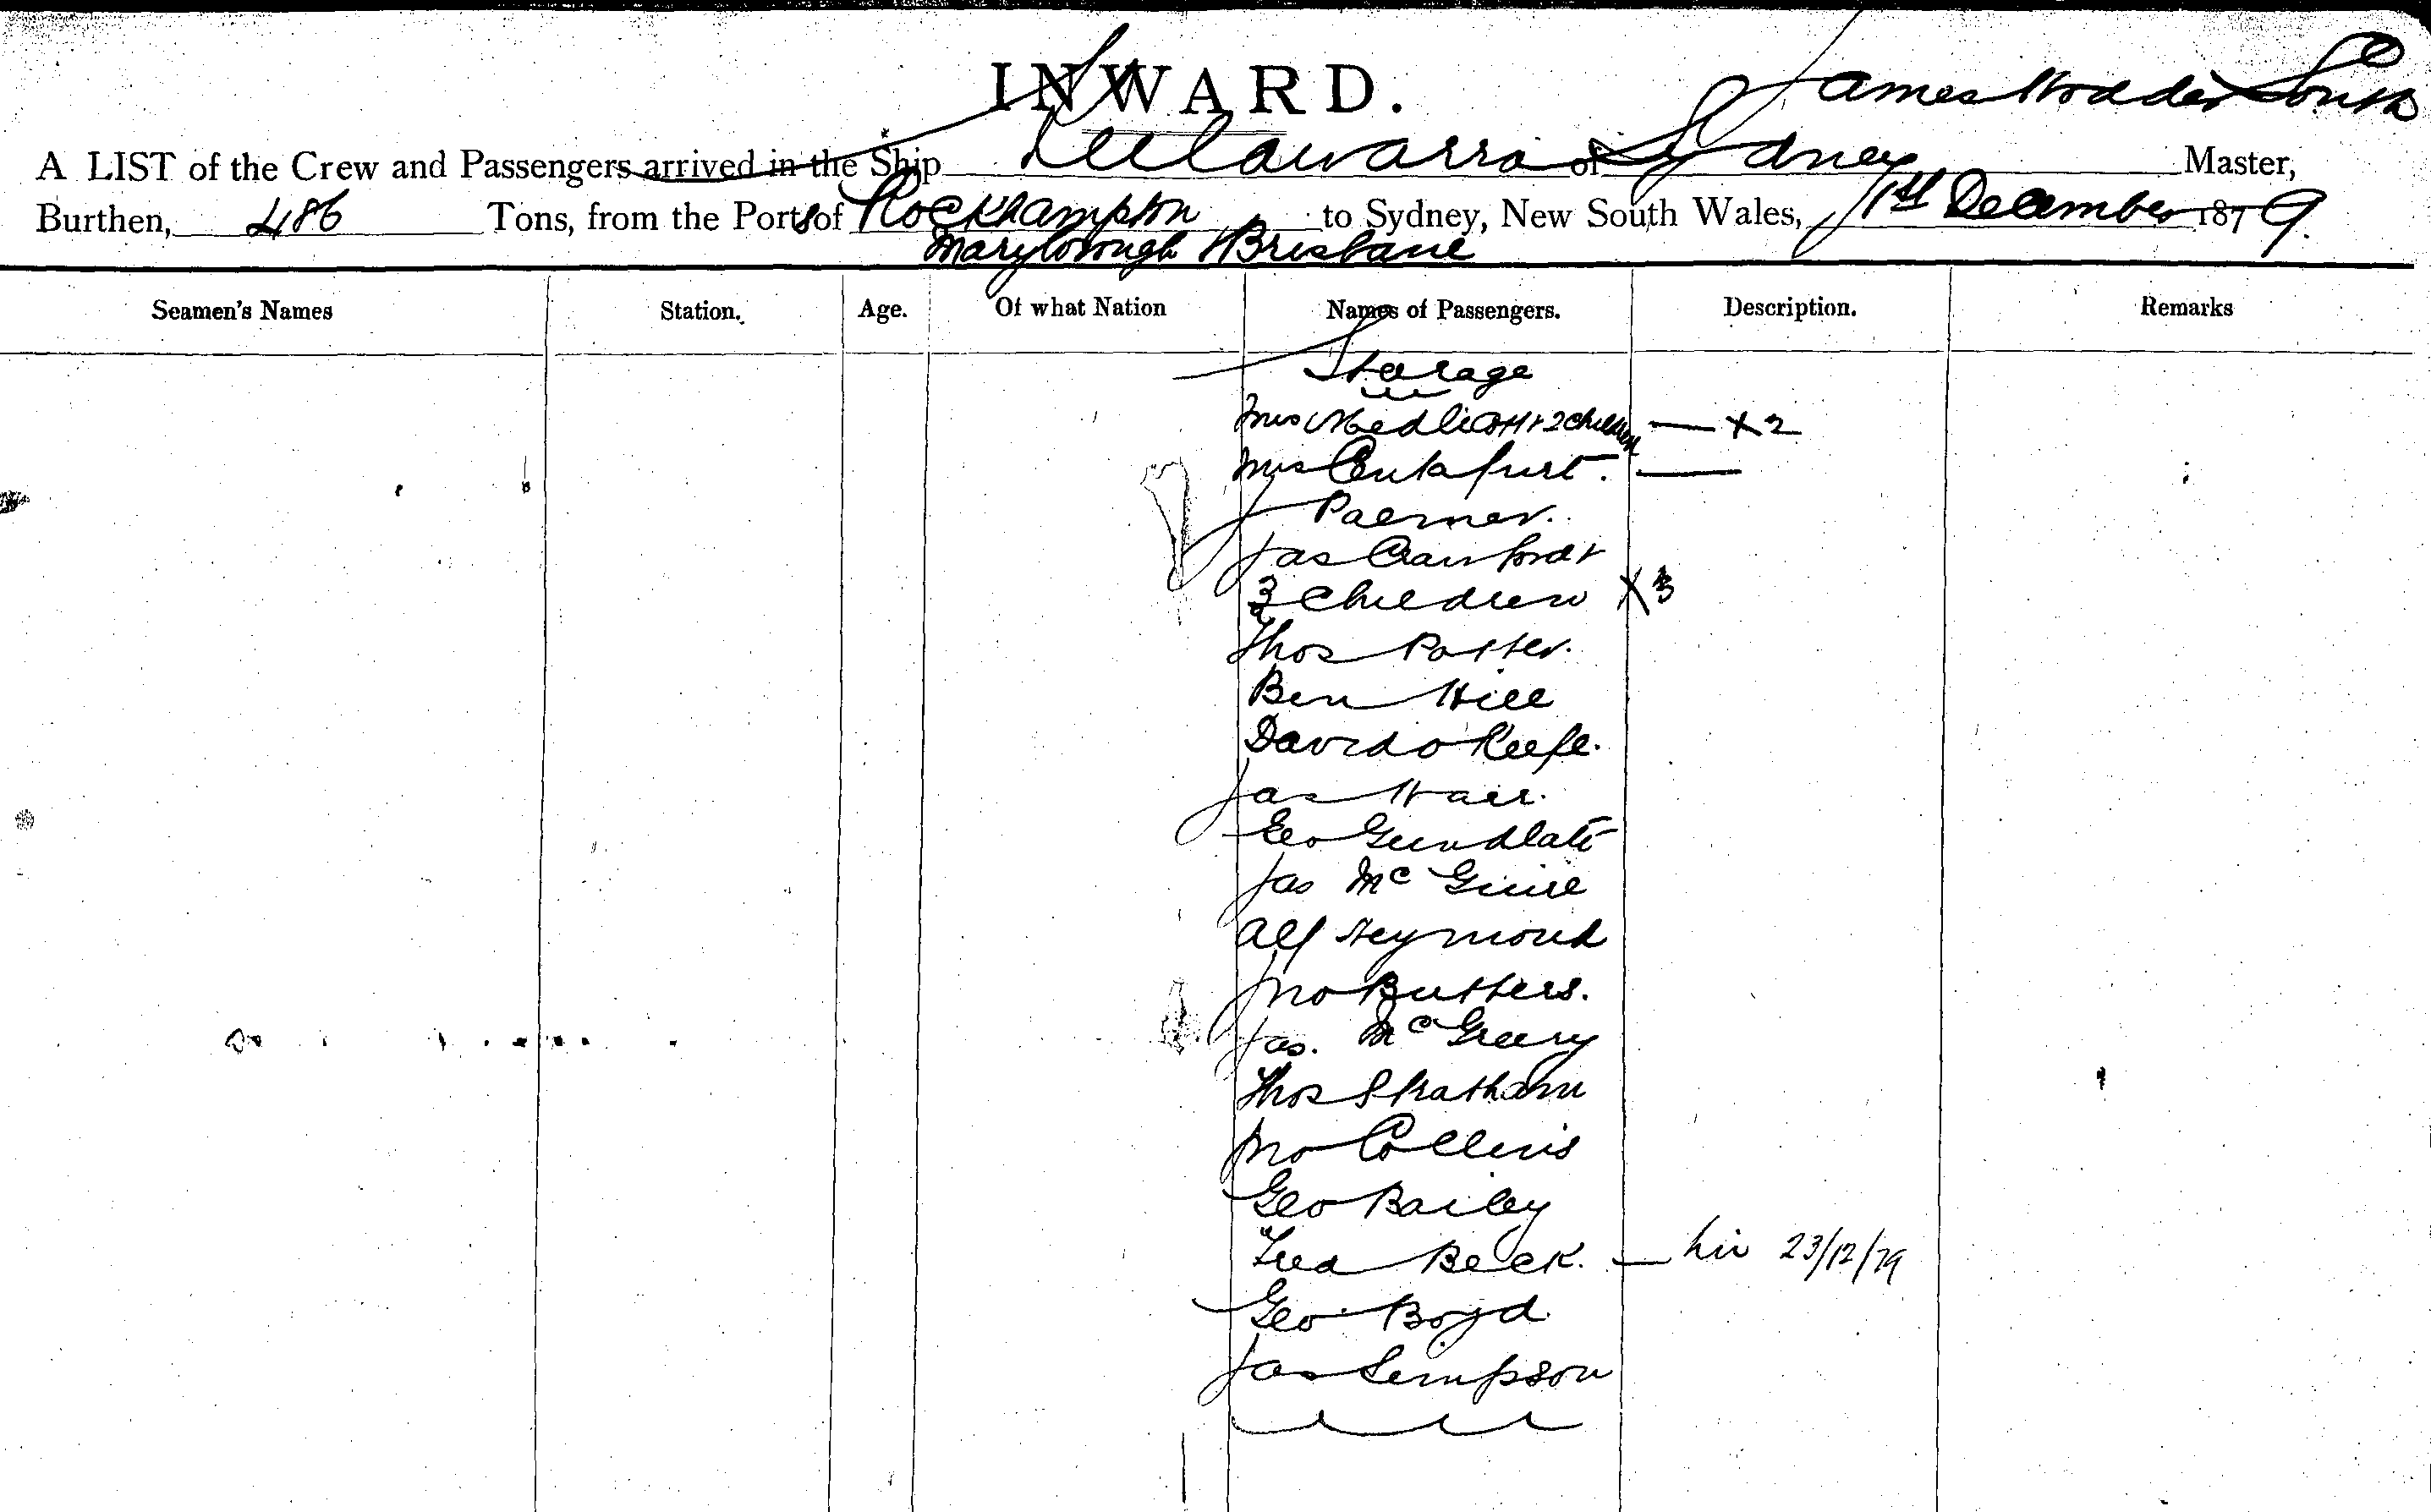 INWARD.
James Hodder South
A LIST of the Crew and Passengers arrived in the Ship of Sydney Master,
Burthen, 486 Tons, from the Ports of Rockhampton to Sydney, New South Wales, 1st December 1879.
Maryborough & Brisbane
Seamen's Names Station. Age. Of what Nation Names of Passengers. Description. Remarks
Storage
Mrs Medlicott & 2 children — X 2
Mrs —
Palmer.
Jas Crawford &
3 Children X 3
Thos Potter.
Ben Hill
David O Keefe.
Jas Hair.
Geo
Jas Mc Guire
Alf Seymour
Jno Butters.
Jas. Mc Greery
Thos Stratham
Jno Collins
Geo Bailey
Fred Beck. — 23/12/79
Geo Boyd
Jas Simpson